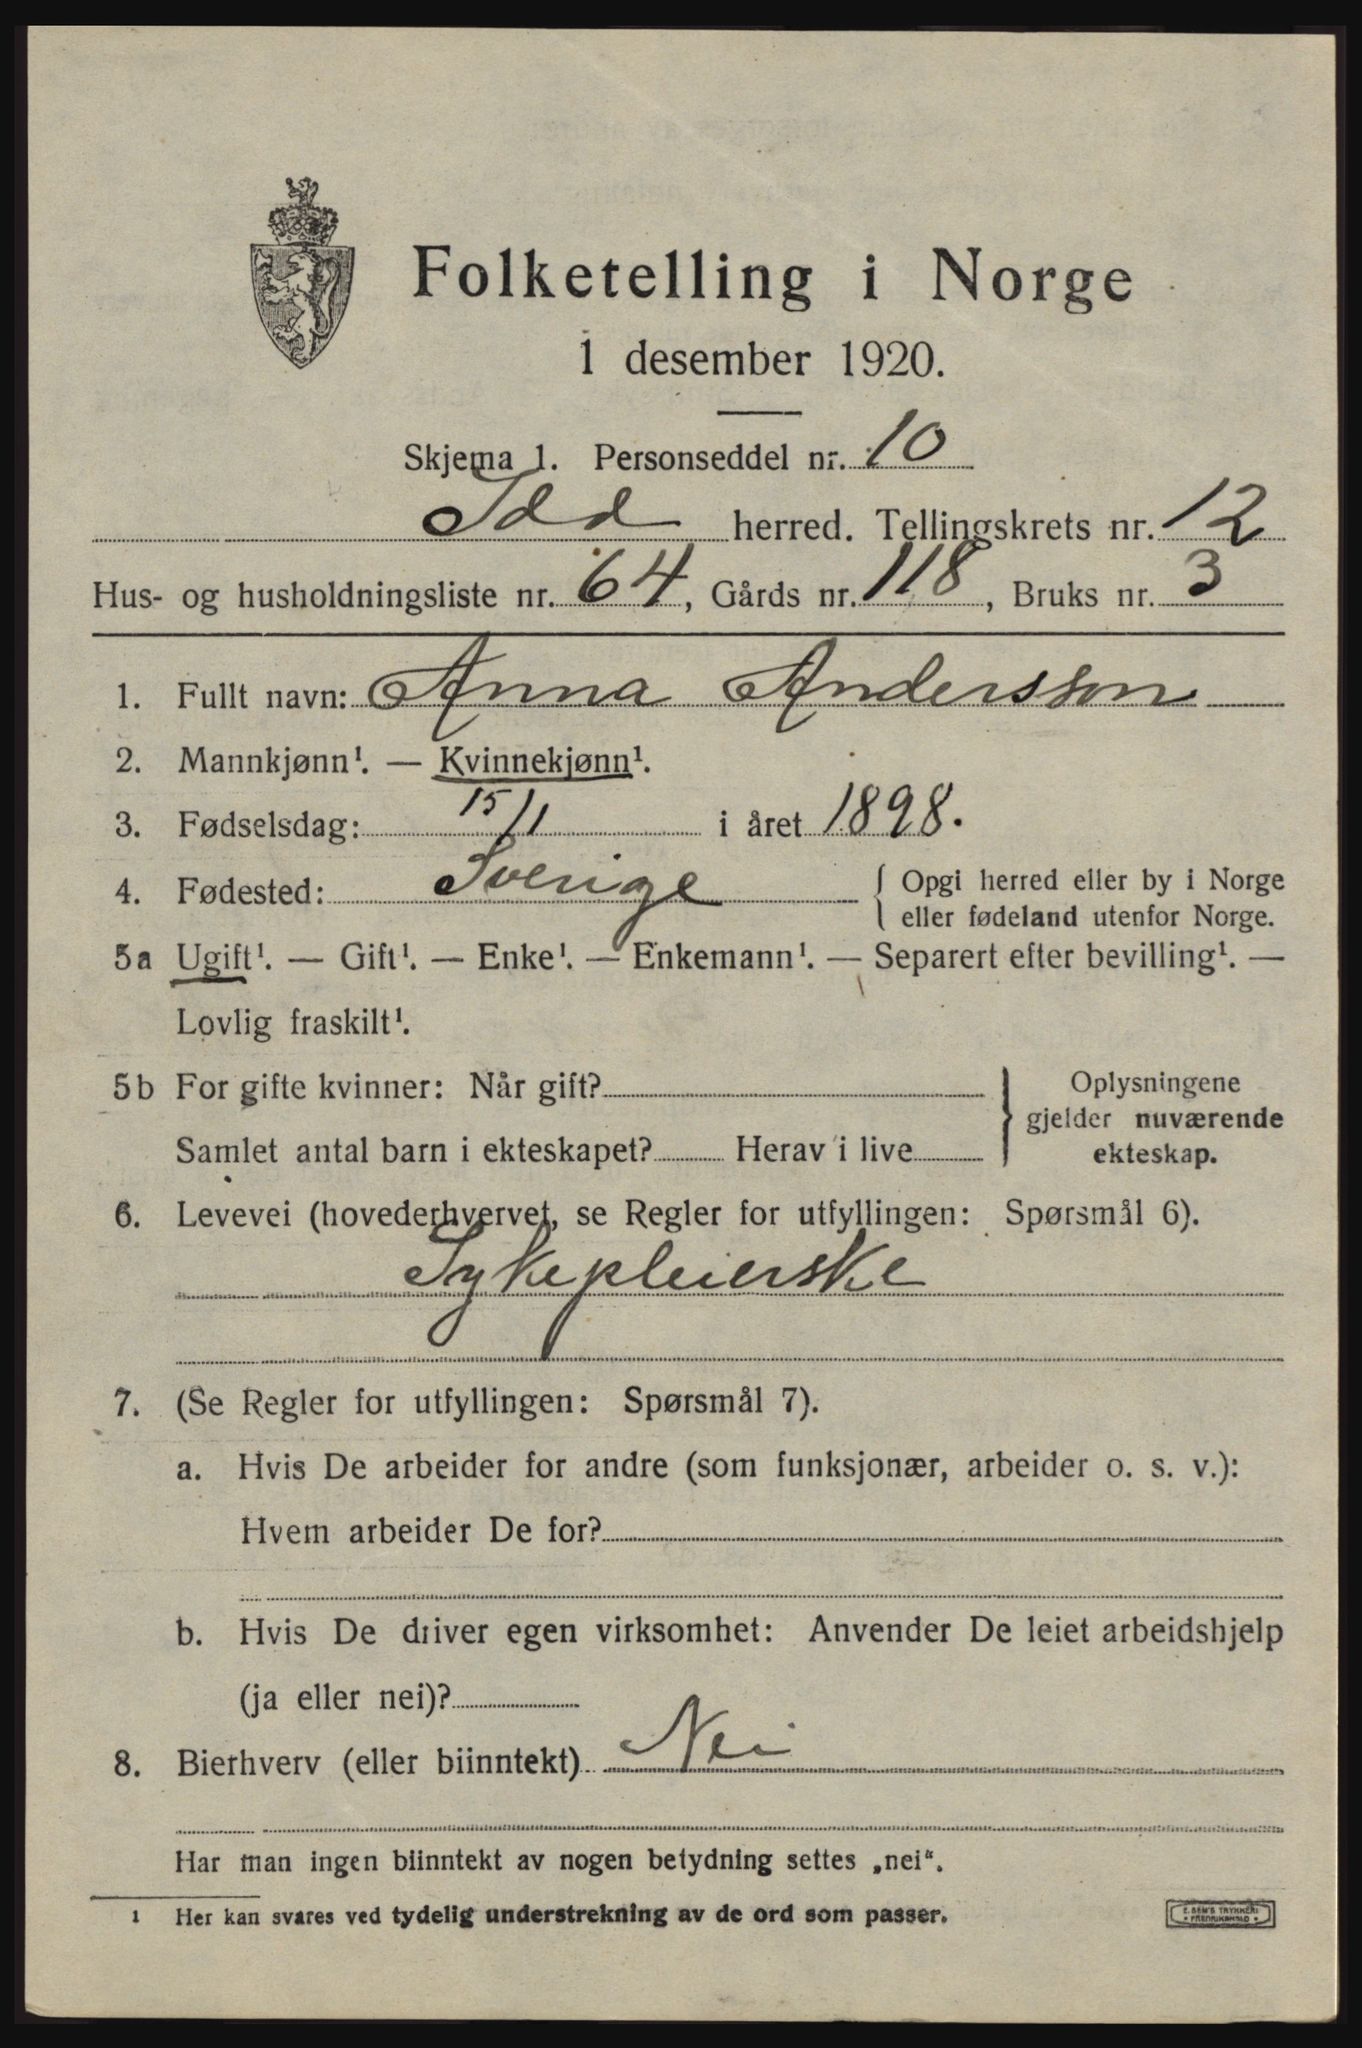 Folketelling i Norge
1 desember 1920.
Skjema 1. Personseddel nr. 10
Idd herred. Tellingskrets nr. 12
Hus- og husholdningsliste nr. 64, Gårds nr. 118, Bruks nr. 3
1. Fullt navn: Anna Andersson
2. Mannkjønn¹. — Kvinnekjønn¹.
3. Fødselsdag: 15/1 i året 1898.
4. Fødested: Sverige { Opgi herred eller by i Norge
eller fødeland utenfor Norge.
5a Ugift¹. — Gift¹. — Enke¹. — Enkemann¹. — Separert efter bevilling¹. —
Lovlig fraskilt¹.
5b For gifte kvinner: Når gift? } Oplysningene
gjelder nuværende
Samlet antal barn i ekteskapet? Herav i live ekteskap.
6. Levevei (hovederhvervet, se Regler for utfyllingen: Spørsmål 6).
Sykepleierske
7. (Se Regler for utfyllingen: Spørsmål 7).
a. Hvis De arbeider for andre (som funksjonær, arbeider o. s. v.):
Hvem arbeider De for?
b. Hvis De driver egen virksomhet: Anvender De leiet arbeidshjelp
(ja eller nei)?
8. Bierhverv (eller biinntekt) Nei
Har man ingen biinntekt av nogen betydning settes „nei“.
¹ Her kan svares ved tydelig understrekning av de ord som passer.
E. SEM'S TRYKKERI
FREDRIKSHALD